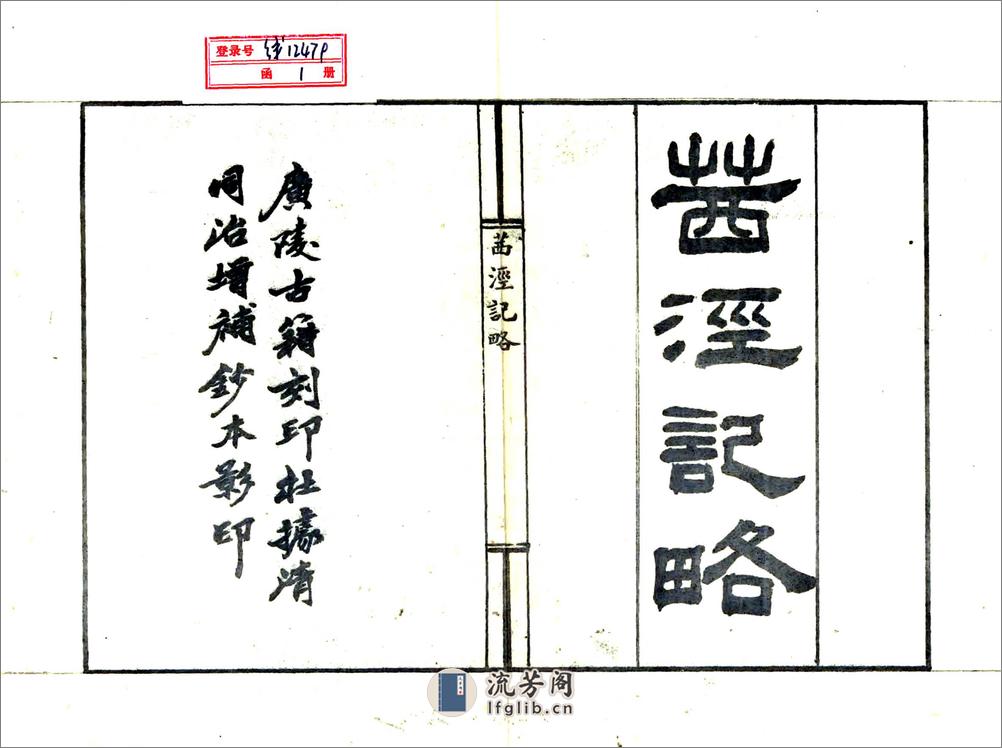 登录号 线12479
函 1 册
茜涇記略
茜涇記略
廣陵古籍刻印社據清
同治增補鈔本影印
流芳阁
lfglib.cn